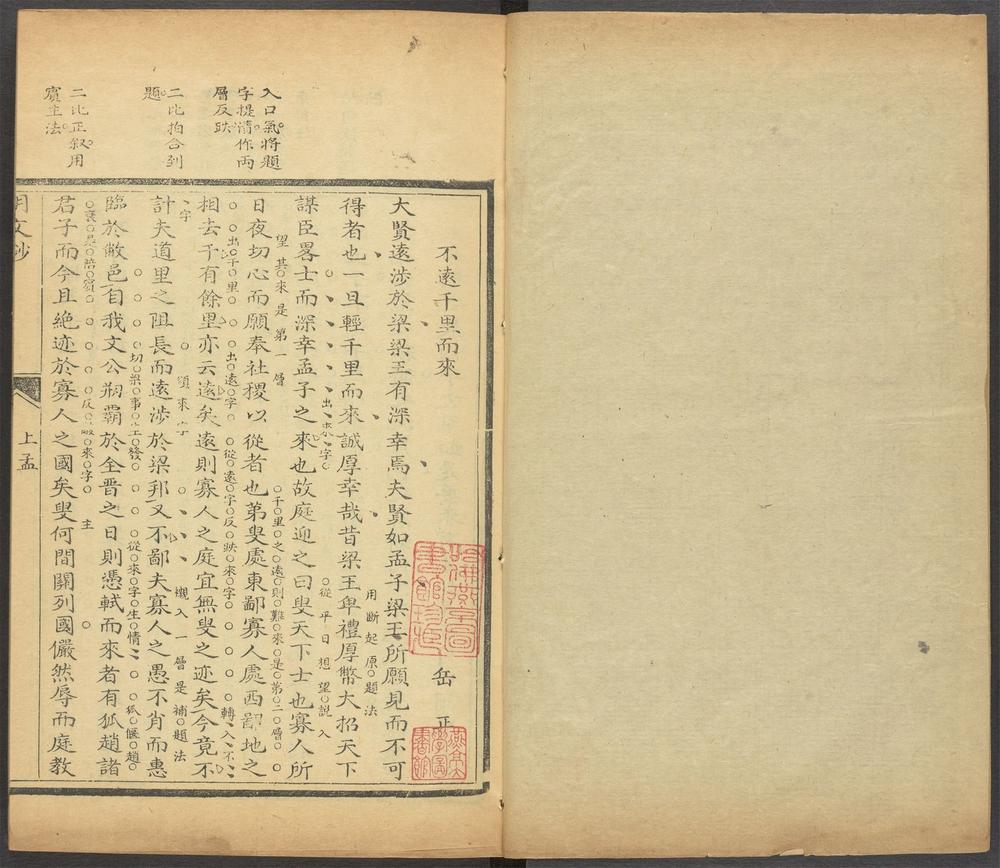 入口氣將題
字提清作兩
層反跌
二比拍合到
題
二比正叙用
賓主法
不遠千里而來
岳正
大賢遠涉於梁梁王有深幸焉夫賢如孟子梁王所願見而不可
用斷起原題法
得者也一旦輕千里而來誠厚幸哉昔梁王卑禮厚幣大招天下
出來字
從平日想望説入
謀臣畧士而深幸孟子之來也故庭迎之曰叟天下士也寡人所
望其來是第一層
千里之遠則難來是第二層
日夜切心而願奉社稷以從者也第叟處東鄙寡人處西鄙地之
出千里
出遠字
從遠字反跌來字
轉入不
相去千有餘里亦云遠矣遠則寡人之庭宜無叟之迹矣今竟不
字
領來字
襯入一層是補題法
計夫道里之阻長而遠涉於梁邦又不鄙夫寡人之愚不肖而惠
切梁事立發
從來字生情
狐偃趙
臨於敝邑自我文公刱霸於全晋之日則憑軾而來者有狐趙諸
衰是陪賓
反來字
主
君子而今且絶迹於寡人之國矣叟何間關列國儼然辱而庭教
明文鈔
上孟
哈佛燕京圖書館珍藏
燕京大學圖書館